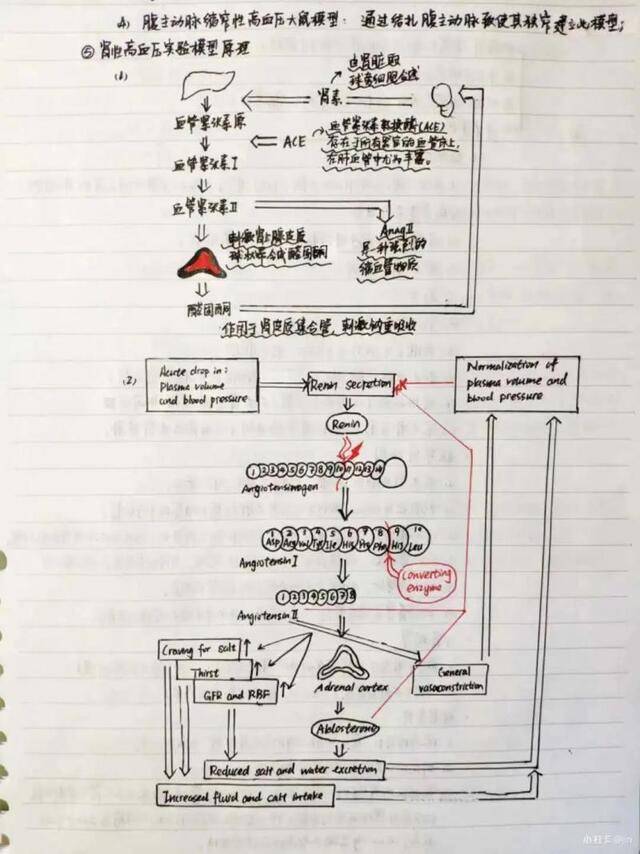 4) 腹主动脉缩窄性高血压大鼠模型：通过结扎腹主动脉致使其狭窄建立此模型；
⑤ 肾性高血压实验模型原理
(1)
由肾脏近
球旁细胞合成
肾素
血管紧张素原
ACE
血管紧张素转换酶(ACE)
存在于所有器官的血管床上，
在肺血管中尤为丰富。
血管紧张素Ⅰ
血管紧张素Ⅱ
刺激肾上腺皮质
球状带合成醛固酮
AnagⅡ
另一种强烈的
缩血管物质
醛固酮
作用于肾皮质集合管，刺激钠重吸收
(2)
Acute drop in:
Plasma volume
and blood pressure
Renin secretion
Normalization of
plasma volume and
blood pressure
Renin
1 2 3 4 5 6 7 8 9 10 11 12 13 14
Angiotensinogen
1 2 3 4 5 6 7 8 9 10
Asp Arg Val Tyr Ile His Pro Phe His Leu
Angiotensin Ⅰ
Converting
enzyme
1 2 3 4 5 6 7 8
Angiotensin Ⅱ
Craving for salt
Thirst
GFR and RBF
Adrenal cortex
General
vasoconstriction
Ablosterone
Reduced salt and water excretion
Increased fluid and calt intake